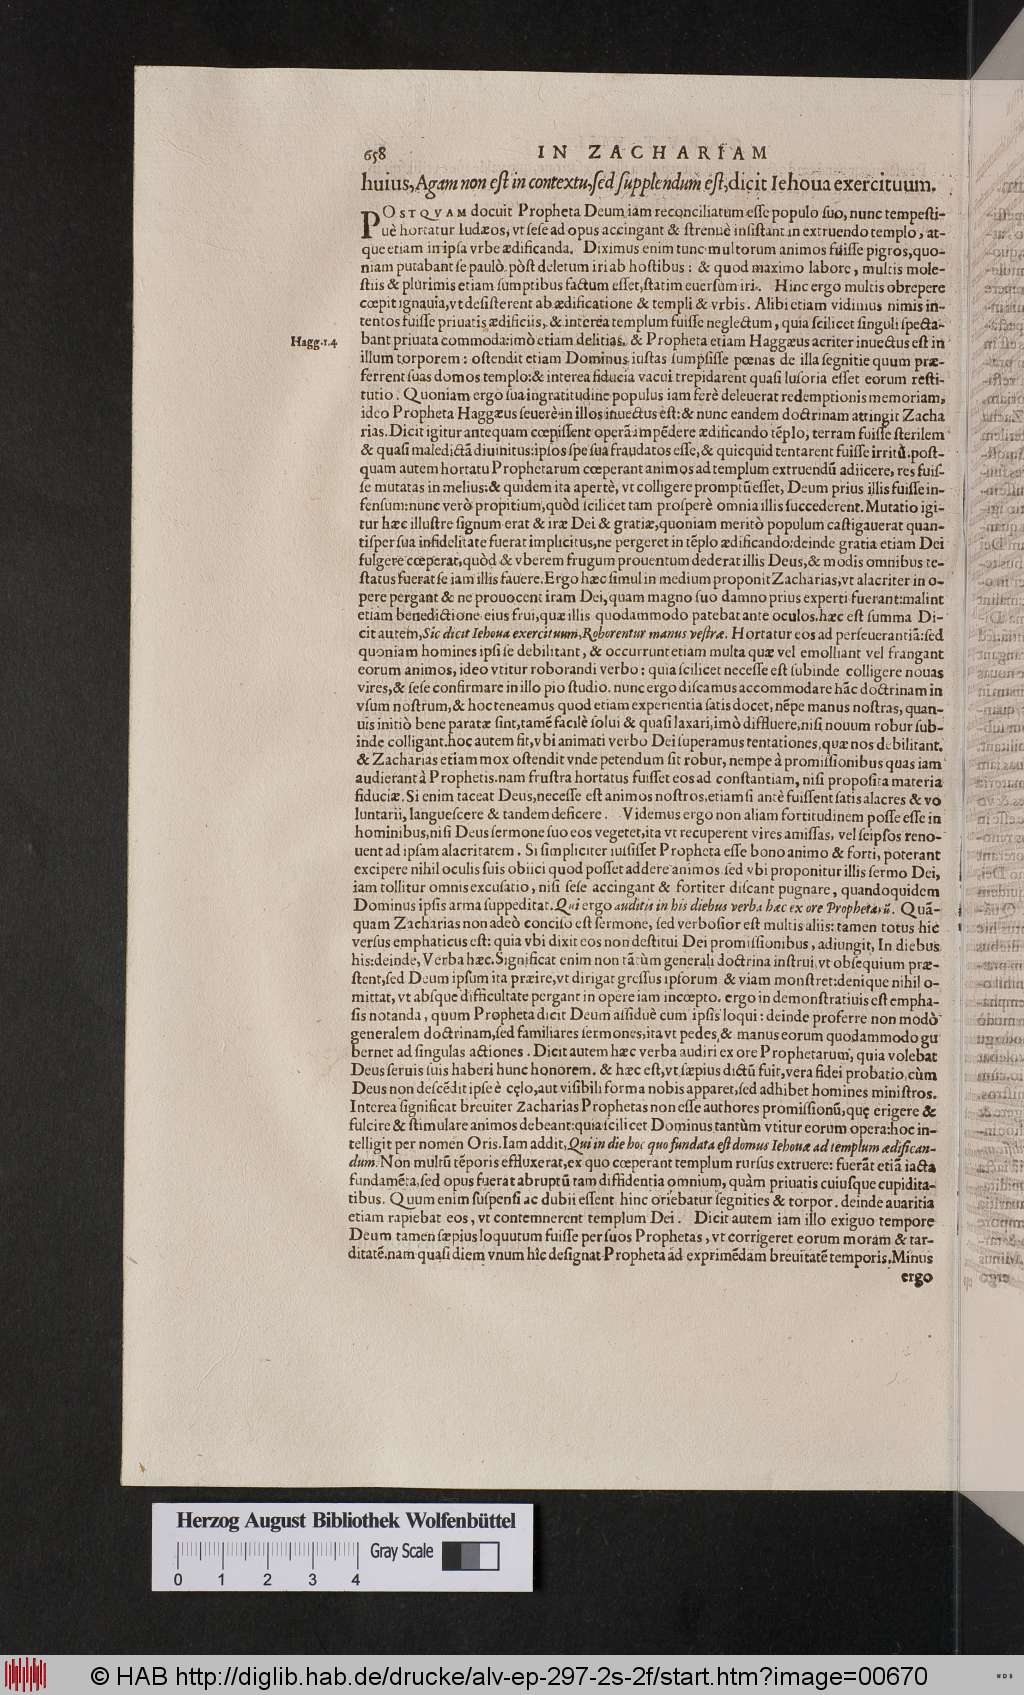 658 IN ZACHARIAM
huius, Agam non est in contextu, sed supplendum est, dicit Iehoua exercituum.
POSTQVAM docuit Propheta Deum iam reconciliatum esse populo suo, nunc tempesti-
uè hortatur Iudæos, vt sese ad opus accingant & strenuè insistant in extruendo templo, at-
que etiam in ipsa vrbe ædificanda. Diximus enim tunc multorum animos fuisse pigros, quo-
niam putabant se paulò pòst deletum iri ab hostibus: & quod maximo labore, multis mole-
stiis & plurimis etiam sumptibus factum esset, statim euersum iri. Hinc ergo multis obrepere
cœpit ignauia, vt desisterent ab ædificatione & templi & vrbis. Alibi etiam vidimus nimis in-
tentos fuisse priuatis ædificiis, & interea templum fuisse neglectum, quia scilicet singuli specta-
Hagg.1.4
bant priuata commoda: imò etiam delitias, & Propheta etiam Haggæus acriter inuectus est in
illum torporem: ostendit etiam Dominus iustas sumpsisse pœnas de illa segnitie quum præ-
ferrent suas domos templo: & interea fiducia vacui trepidarent quasi lusoria esset eorum resti-
tutio. Quoniam ergo sua ingratitudine populus iam ferè deleuerat redemptionis memoriam,
ideo Propheta Haggæus seuerè in illos inuectus est: & nunc eandem doctrinam attingit Zacha
rias. Dicit igitur antequam cœpissent operã impẽdere ædificando tẽplo, terram fuisse sterilem
& quasi maledictã diuinitus: ipsos spe sua fraudatos esse, & quicquid tentarent fuisse irritũ. post-
quam autem hortatu Prophetarum cœperant animos ad templum extruendũ adiicere, res fuis-
se mutatas in melius: & quidem ita apertè, vt colligere promptũ esset, Deum prius illis fuisse in-
fensum: nunc verò propitium, quòd scilicet tam prosperè omnia illis succederent. Mutatio igi-
tur hæc illustre signum erat & iræ Dei & gratiæ, quoniam meritò populum castigauerat quan-
tisper sua infidelitate fuerat implicitus, ne pergeret in tẽplo ædificando: deinde gratia etiam Dei
fulgere cœperat, quòd & vberem frugum prouentum dederat illis Deus, & modis omnibus te-
status fuerat se iam illis fauere. Ergo hæc simul in medium proponit Zacharias, vt alacriter in o-
pere pergant & ne prouocent iram Dei, quam magno suo damno prius experti fuerant: malint
etiam benedictione eius frui, quæ illis quodammodo patebat ante oculos. hæc est summa Di-
cit autem, Sic dicit Iehoua exercituum, Roborentur manus vestræ. Hortatur eos ad perseuerantiã: sed
quoniam homines ipsi se debilitant, & occurrunt etiam multa quæ vel emolliant vel frangant
eorum animos, ideo vtitur roborandi verbo: quia scilicet necesse est subinde colligere nouas
vires, & sese confirmare in illo pio studio. nunc ergo discamus accommodare hãc doctrinam in
vsum nostrum, & hoc teneamus quod etiam experientia satis docet, nẽpe manus nostras, quan-
uis initiò bene paratæ sint, tamẽ facilè solui & quasi laxari, imò diffluere, nisi nouum robur sub-
inde colligant. hoc autem fit, vbi animati verbo Dei superamus tentationes, quæ nos debilitant.
& Zacharias etiam mox ostendit vnde petendum sit robur, nempe à promissionibus quas iam
audierant à Prophetis. nam frustra hortatus fuisset eos ad constantiam, nisi proposita materia
fiduciæ. Si enim taceat Deus, necesse est animos nostros, etiamsi antè fuissent satis alacres & vo
luntarii, languescere & tandem deficere. Videmus ergo non aliam fortitudinem posse esse in
hominibus, nisi Deus sermone suo eos vegetet, ita vt recuperent vires amissas, vel seipsos reno-
uent ad ipsam alacritatem. Si simpliciter iussisset Propheta esse bono animo & forti, poterant
excipere nihil oculis suis obiici quod posset addere animos. sed vbi proponitur illis sermo Dei,
iam tollitur omnis excusatio, nisi sese accingant & fortiter discant pugnare, quandoquidem
Dominus ipsis arma suppeditat. Qui ergo auditis in his diebus verba hæc ex ore Prophetarũ. Quã-
quam Zacharias non adeò conciso est sermone, sed verbosior est multis aliis: tamen totus hic
versus emphaticus est: quia vbi dixit eos non destitui Dei promissionibus, adiungit, In diebus
his: deinde, Verba hæc. Significat enim non tãtùm generali doctrina instrui vt obsequium præ-
stent, sed Deum ipsum ita præire, vt dirigat gressus ipsorum & viam monstret: denique nihil o-
mittat, vt absque difficultate pergant in opere iam incœpto. ergo in demonstratiuis est empha-
sis notanda, quum Propheta dicit Deum assiduè cum ipsis loqui: deinde proferre non modò
generalem doctrinam, sed familiares sermones, ita vt pedes & manus eorum quodammodo gu
bernet ad singulas actiones. Dicit autem hæc verba audiri ex ore Prophetarum, quia volebat
Deus seruis suis haberi hunc honorem. & hæc est, vt sæpius dictũ fuit, vera fidei probatio, cùm
Deus non descẽdit ipse è cęlo, aut visibili forma nobis apparet, sed adhibet homines ministros.
Interea significat breuiter Zacharias Prophetas non esse authores promissionũ, quę erigere &
fulcire & stimulare animos debeant: quia scilicet Dominus tantùm vtitur eorum opera: hoc in-
telligit per nomen Oris. Iam addit, Qui in die hoc quo fundata est domus Iehouæ ad templum ædifican-
dum. Non multũ tẽporis effluxerat, ex quo cœperant templum rursus extruere: fuerãt etiã iacta
fundamẽta, sed opus fuerat abruptũ tam diffidentia omnium, quàm priuatis cuiusque cupidita-
tibus. Quum enim suspensi ac dubii essent hinc oriebatur segnities & torpor. deinde auaritia
etiam rapiebat eos, vt contemnerent templum Dei. Dicit autem iam illo exiguo tempore
Deum tamen sæpius loquutum fuisse per suos Prophetas, vt corrigeret eorum moram & tar-
ditatẽ. nam quasi diem vnum hîc designat Propheta ad exprimẽdam breuitatẽ temporis. Minus
ergo
Herzog August Bibliothek Wolfenbüttel
Gray Scale
0 1 2 3 4
© HAB http://diglib.hab.de/drucke/alv-ep-297-2s-2f/start.htm?image=00670